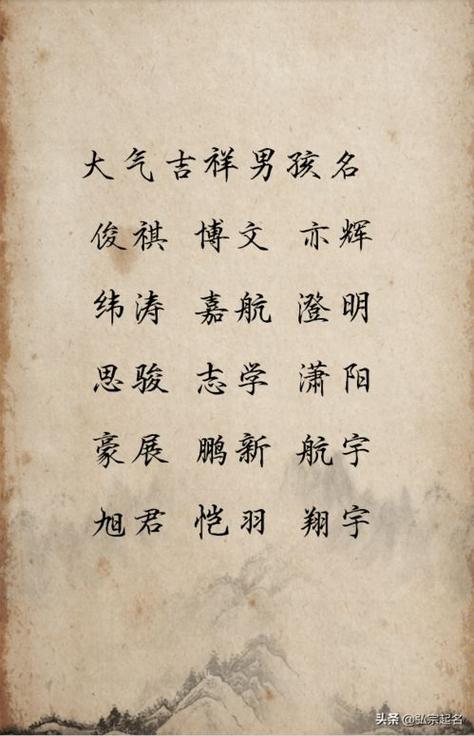 大气吉祥男孩名
俊祺 博文 亦辉
纬涛 嘉航 澄明
思骏 志学 潇阳
豪展 鹏新 航宇
旭君 恺羽 翔宇
头条 @弘宗起名